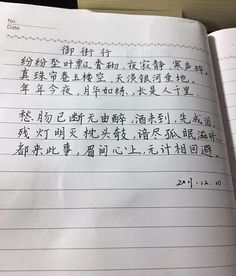 No.
Date
御街行
纷纷坠叶飘香砌,夜寂静,寒声碎。
真珠帘卷玉楼空,天淡银河垂地。
年年今夜,月华如练,长是人千里。
愁肠已断无由醉,酒未到,先成泪。
残灯明灭枕头敧,谙尽孤眠滋味。
都来此事,眉间心上,无计相回避。